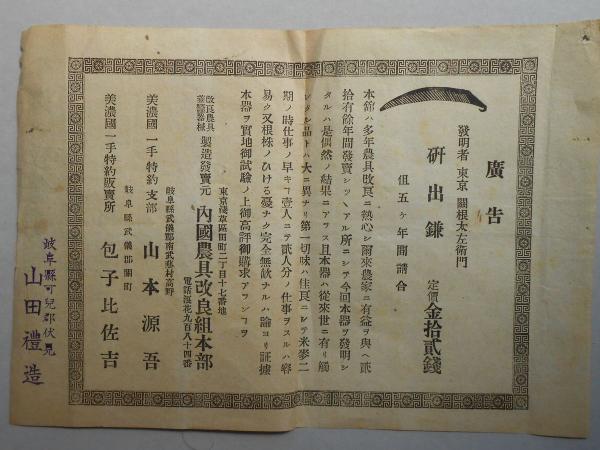 廣告
發明者 東京 關根太左衛門
研出鎌 定價金拾貳錢
但五ヶ年間請合
本舘ハ多年農具改良ニ熱心シ爾來農家ニ有益ヲ與ヘ貮
拾有餘年間發賣シツヽアル所ニシテ今回本器ヲ發明シ
タルハ是偶然ノ結果ニアラス且本器ハ從來世ニ有リ觸
レタル品トハ大ニ異ナリ第一切味ハ佳良ニシテ米麥二
期ノ時仕事ノ早キヿ壹人ニテ貳人分ノ仕事ヲスルハ容
易ク又根株ノひける憂ナク完全無缺ナルハ論ヨリ証據
本器ヲ實地御試驗ノ上御高評御購求アランヿヲ
東京淺草區田町二丁目十七番地
改良農具
蠶業器械
製造發賣元 內國農具改良組本部
電話浪花九百八十四番
岐阜縣武儀郡南武藝村高野
美濃國一手特約支部 山本源吾
岐阜縣武儀郡關町
美濃國一手特約販賣所 包子比佐吉
岐阜縣可兒郡伏見
山田禮造